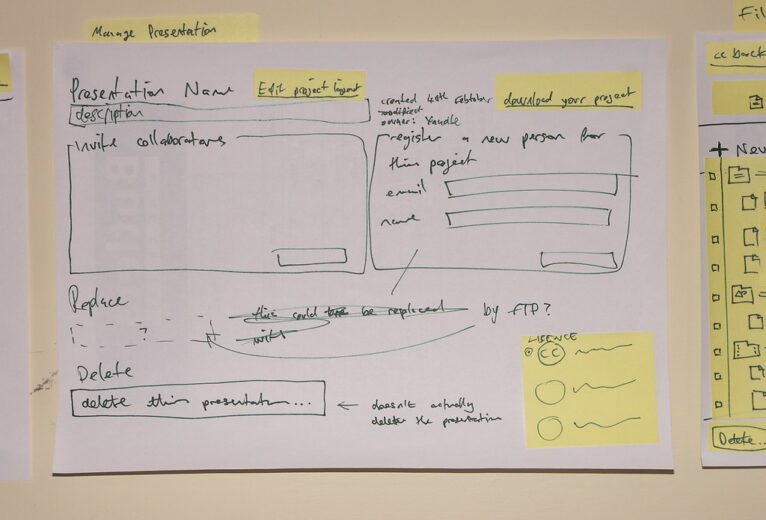 Manage Presentation
Presentation Name
Edit project layout
description
created 4th
modified
owner:
download your project
Invite collaborators
register a new person for
this project
email
name
Replace
?
this could be replaced
with
by FTP?
LISENCE
CC
Delete
delete this presentation...
← doesn't actually
delete the presentation
Fil
<< back
+ New
Delete...